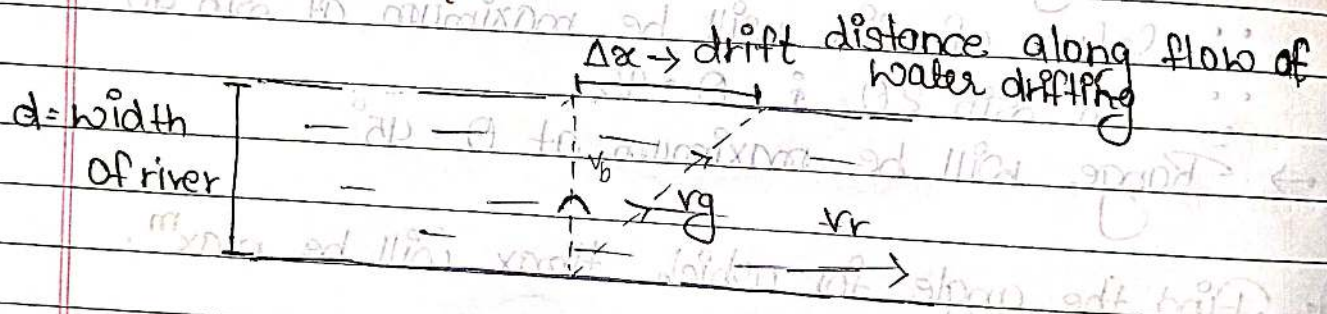 Δx → drift distance along flow of
water drifting
d = width
of river
vb
vg
vr